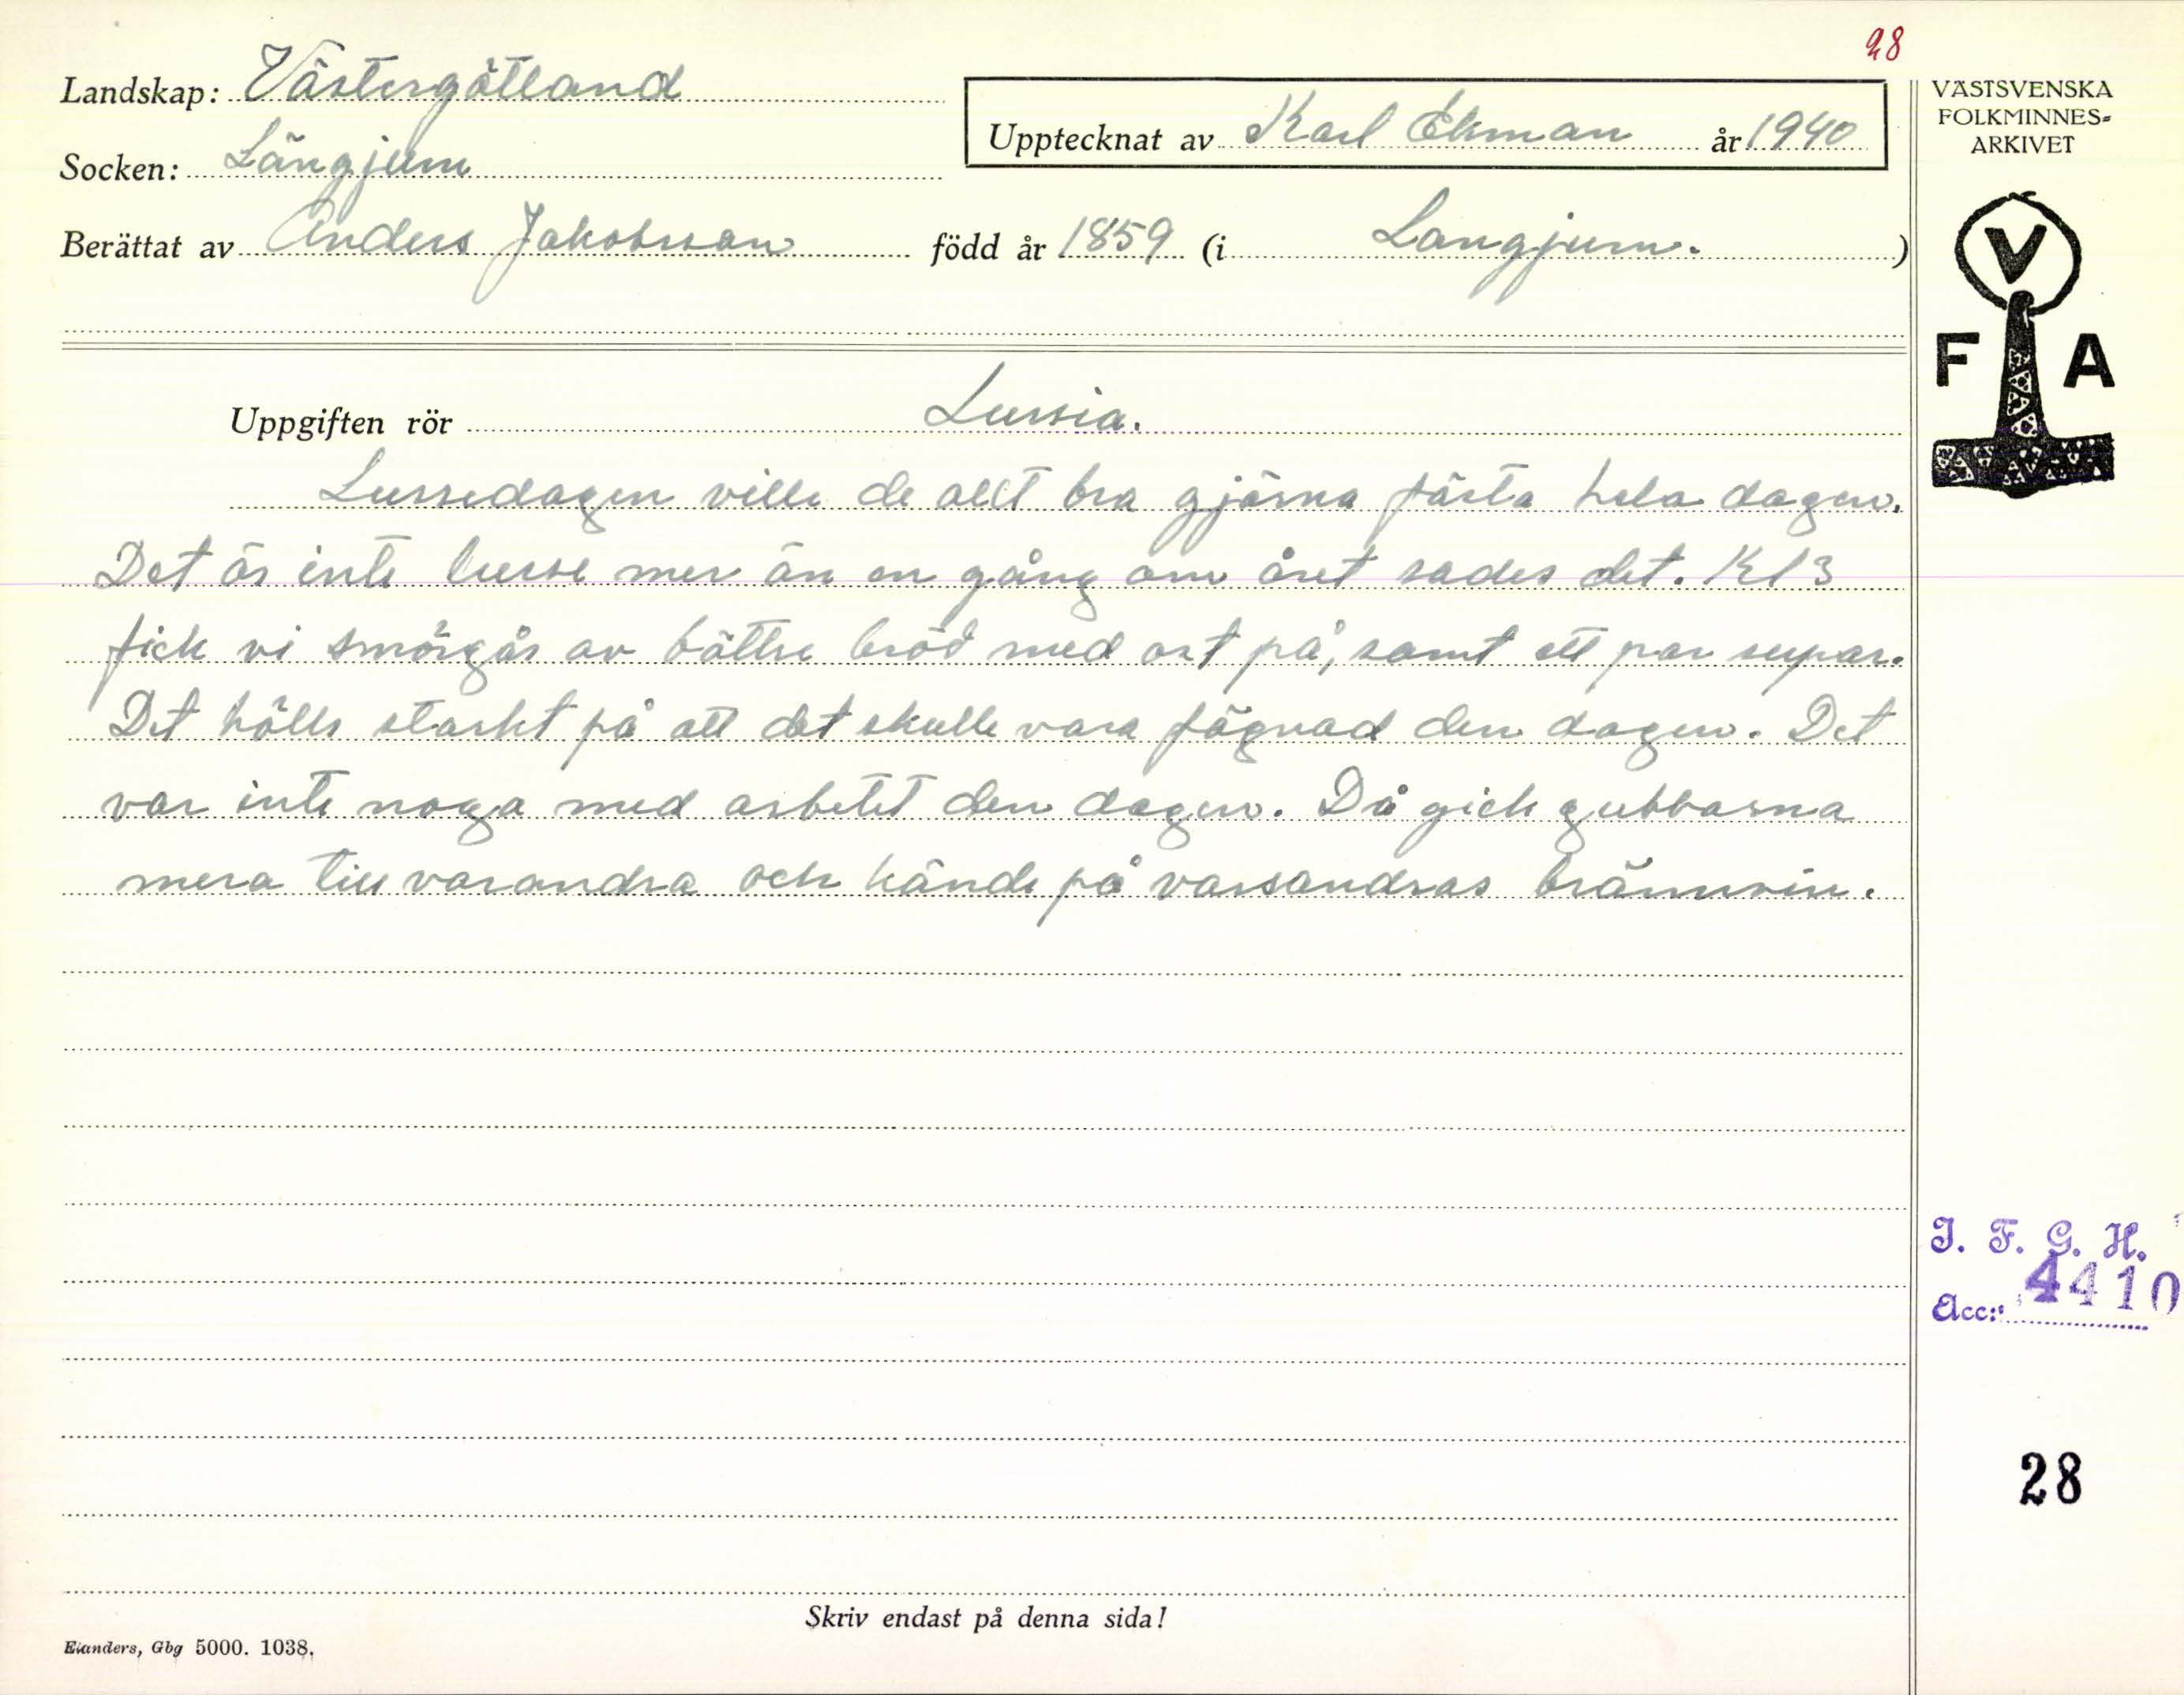 28
Landskap: Västergötland
Upptecknat av Karl Ekman år 1940
Socken: Längjum
Berättat av Anders Jakobsson född år 1859 (i Langjum. )
VÄSTSVENSKA
FOLKMINNES-
ARKIVET
V
F A
Uppgiften rör Lussia.
Lussedagen ville de allt bra gjärna fästa hela dagen.
Det är inte lusse mer än en gång om året sades det. Kl 3
fick vi smörgås av bättre bröd med ost på, samt ett par supar.
Det hölls starkt på att det skulle vara fägnad den dagen. Det
var inte noga med arbetet den dagen. Då gick gubbarna
mera till varandra och kände på varsandras brännvin.
I. F. G. H.
Acc: 4410
28
Skriv endast på denna sida!
Elanders, Gbg 5000. 1038.